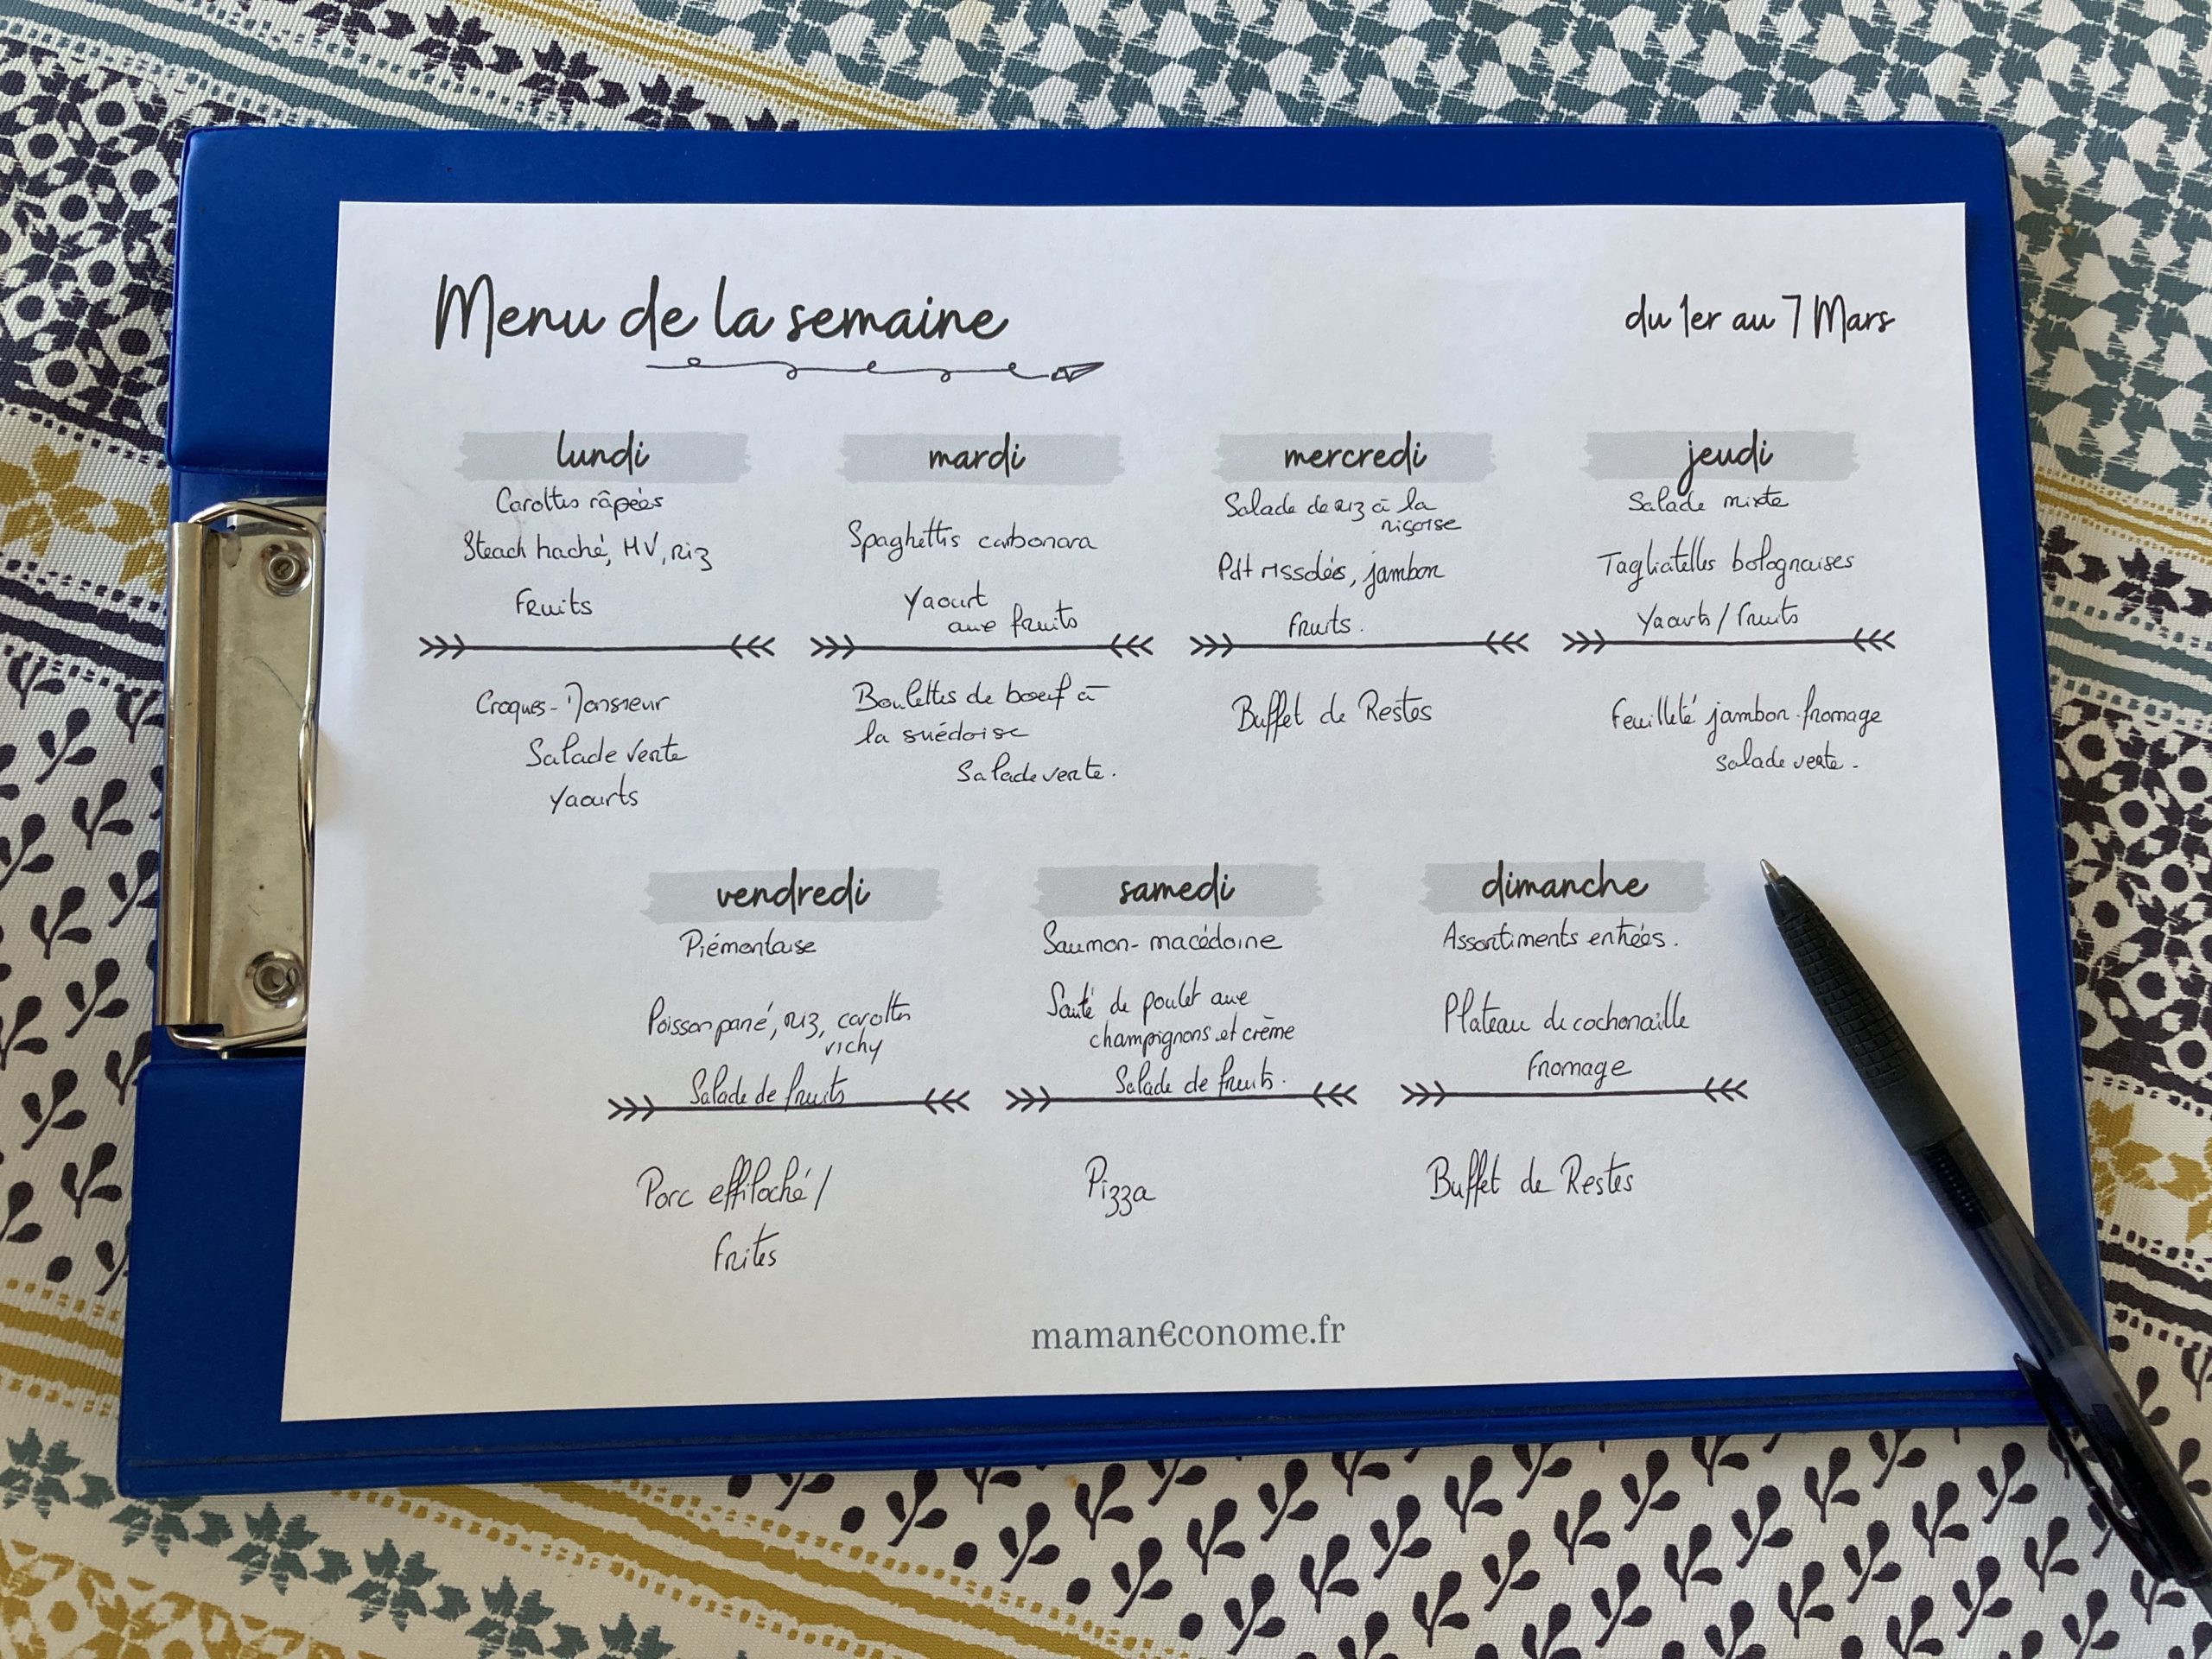 Menu de la semaine
du 1er au 7 Mars
lundi
Carottes râpées
Steack haché, HV, riz
Fruits
Croques-Monsieur
Salade verte
Yaourts
mardi
Spaghettis carbonara
Yaourt
aux fruits
Boulettes de boeuf à
la suédoise
Salade verte.
mercredi
Salade de riz à la
niçoise
Pdt rissolées, jambon
Fruits.
Buffet de Restes
jeudi
Salade mixte
Tagliatelles bolognaises
Yaourts/fruits
Feuilleté jambon-fromage
salade verte.
vendredi
Piémontaise
Poisson pané, riz, carottes
vichy
Salade de fruits
Porc effiloché/
Frites
samedi
Saumon-macédoine
Sauté de poulet aux
champignons et crème
Salade de fruits.
Pizza
dimanche
Assortiments entrées.
Plateau de cochonaille
Fromage
Buffet de Restes
maman€conome.fr